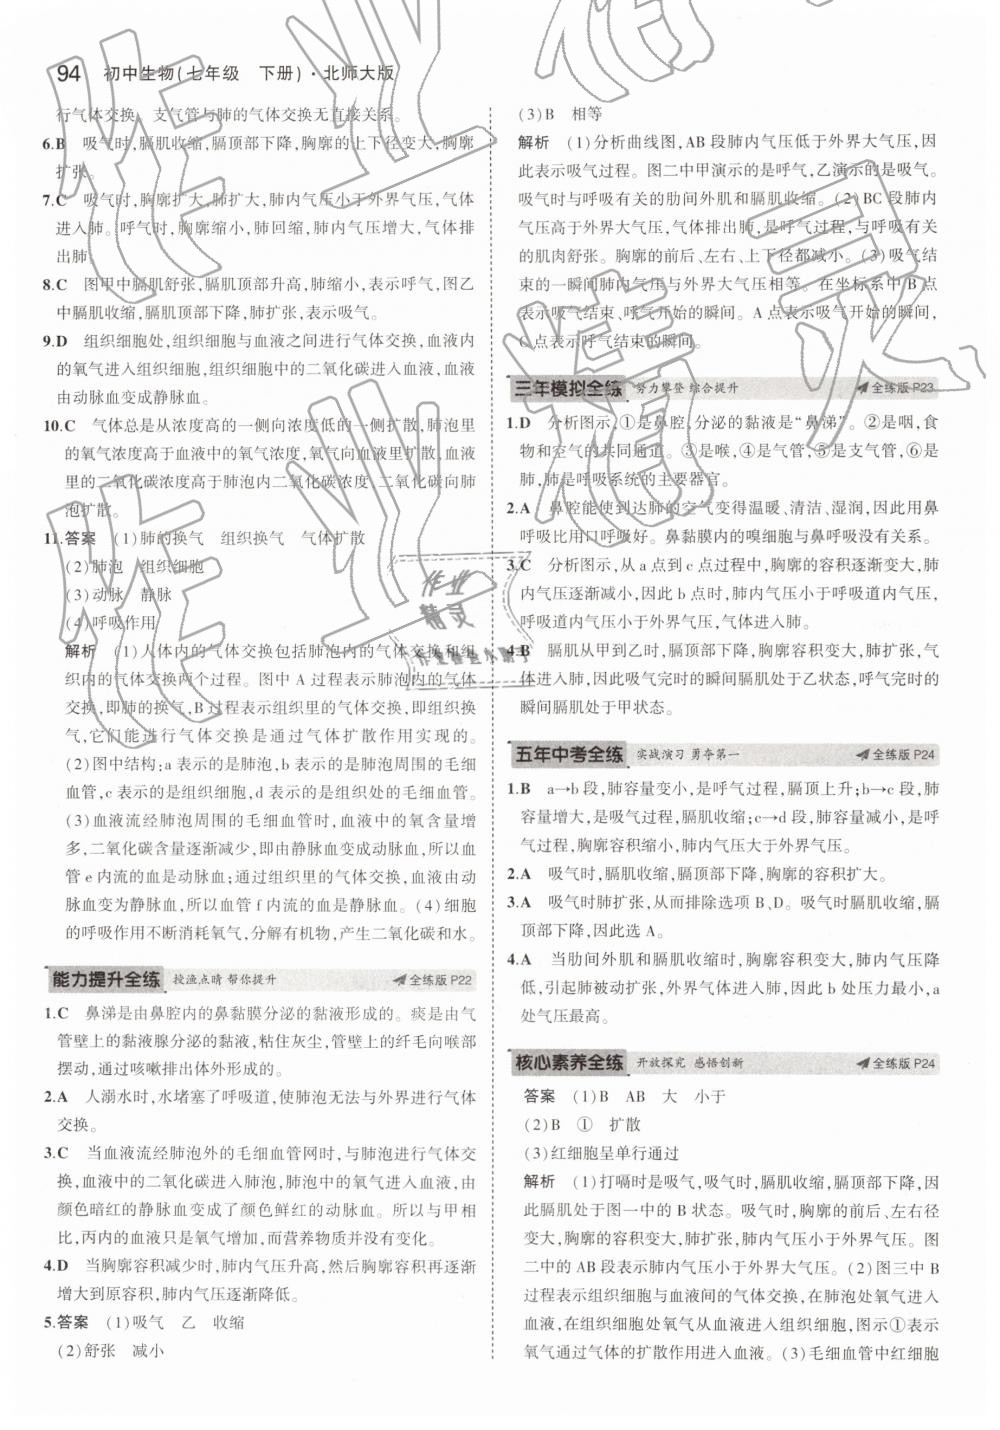 94 初中生物(七年级 下册)·北师大版
行气体交换。支气管与肺的气体交换无直接关系。
6.B 吸气时,膈肌收缩,膈顶部下降,胸廓的上下径变大,胸廓
扩张。
7.C 吸气时,胸廓扩大,肺扩大,肺内气压小于外界气压,气体
进入肺。呼气时,胸廓缩小,肺回缩,肺内气压增大,气体排
出肺。
8.C 图甲中膈肌舒张,膈顶部升高,肺缩小,表示呼气,图乙
中膈肌收缩,膈顶部下降,肺扩张,表示吸气。
9.D 组织细胞处,组织细胞与血液之间进行气体交换,血液内
的氧气进入组织细胞,组织细胞中的二氧化碳进入血液,血液
由动脉血变成静脉血。
10.C 气体总是从浓度高的一侧向浓度低的一侧扩散,肺泡里
的氧气浓度高于血液中的氧气浓度,氧气向血液里扩散,血液
里的二氧化碳浓度高于肺泡内二氧化碳浓度,二氧化碳向肺
泡扩散。
11.答案 (1)肺的换气 组织换气 气体扩散
(2)肺泡 组织细胞
(3)动脉 静脉
(4)呼吸作用
解析 (1)人体内的气体交换包括肺泡内的气体交换和组
织内的气体交换两个过程。图中 A 过程表示肺泡内的气体
交换,即肺的换气,B 过程表示组织里的气体交换,即组织换
气,它们能进行气体交换是通过气体扩散作用实现的。
(2)图中结构:a 表示的是肺泡,b 表示的是肺泡周围的毛细
血管,c 表示的是组织细胞,d 表示的是组织处的毛细血管。
(3)血液流经肺泡周围的毛细血管时,血液中的氧含量增
多,二氧化碳含量逐渐减少,即由静脉血变成动脉血,所以血
管 e 内流的血是动脉血;通过组织里的气体交换,血液由动
脉血变为静脉血,所以血管 f 内流的血是静脉血。(4)细胞
的呼吸作用不断消耗氧气,分解有机物,产生二氧化碳和水。
能力提升全练 授渔点睛 帮你提升 全练版 P22
1.C 鼻涕是由鼻腔内的鼻黏膜分泌的黏液形成的。痰是由气
管壁上的黏液腺分泌的黏液,粘住灰尘,管壁上的纤毛向喉部
摆动,通过咳嗽排出体外形成的。
2.A 人溺水时,水堵塞了呼吸道,使肺泡无法与外界进行气体
交换。
3.C 当血液流经肺泡外的毛细血管网时,与肺泡进行气体交
换,血液中的二氧化碳进入肺泡,肺泡中的氧气进入血液,由
颜色暗红的静脉血变成了颜色鲜红的动脉血。所以与甲相
比,丙内的血液只是氧气增加,而营养物质并没有变化。
4.D 当胸廓容积减少时,肺内气压升高,然后胸廓容积再逐渐
增大到原容积,肺内气压逐渐降低。
5.答案 (1)吸气 乙 收缩
(2)舒张 减小
(3)B 相等
解析 (1)分析曲线图,AB 段肺内气压低于外界大气压,因
此表示吸气过程。图二中甲演示的是呼气,乙演示的是吸气。
吸气时与呼吸有关的肋间外肌和膈肌收缩。(2)BC 段肺内
气压高于外界大气压,气体排出肺,是呼气过程,与呼吸有关
的肌肉舒张。胸廓的前后、左右、上下径都减小。(3)吸气结
束的一瞬间肺内气压与外界大气压相等。在坐标系中 B 点
表示吸气结束、呼气开始的瞬间。A 点表示吸气开始的瞬间,
C 点表示呼气结束的瞬间。
三年模拟全练 努力攀登 综合提升 全练版 P23
1.D 分析图示,①是鼻腔,分泌的黏液是“鼻涕”。②是咽,食
物和空气的共同通道。③是喉,④是气管,⑤是支气管,⑥是
肺,肺是呼吸系统的主要器官。
2.A 鼻腔能使到达肺的空气变得温暖、清洁、湿润,因此用鼻
呼吸比用口呼吸好。鼻黏膜内的嗅细胞与呼吸没有关系。
3.C 分析图示,从 a 点到 c 点过程中,胸廓的容积逐渐变大,肺
内气压逐渐减小,因此 b 点时,肺内气压小于呼吸道内气压,
呼吸道内气压小于外界气压,气体进入肺。
4.B 膈肌从甲到乙时,膈顶下降,胸廓容积变大,肺扩张,肺内
气压下降,因此吸气完时的瞬间膈肌处于乙状态,呼气完时的
瞬间膈肌处于甲状态。
五年中考全练 实战演习 勇夺第一 全练版 P24
1.B a→b 段,肺容量变小,是呼气过程,膈顶上升;b→c 段,肺
容量增大,是吸气过程,膈肌收缩;c→d 段,肺容量减小,是呼
气过程,胸廓容积缩小,肺内气压大于外界气压。
2.A 吸气时,膈肌收缩,膈顶部下降,胸廓的容积扩大。
3.A 吸气时肺扩张,从而排除选项 B、D。吸气时膈肌收缩,膈
顶下降,因此选 A。
4.A 当肋间外肌和膈肌收缩时,胸廓容积变大,肺内气压降
低,引起肺被动扩张,外界气体进入肺,因此 b 处压力最小,a
处气压最高。
核心素养全练 开放探究 感悟创新 全练版 P24
答案 (1)B AB 大 小于
(2)B ① 扩散
(3)红细胞呈单行通过
解析 (1)打嗝时是吸气,吸气时,膈肌收缩,膈顶部下降,因
此膈肌处于图一中的 B 状态。吸气时,胸廓的前后、左右径
变大,胸廓的容积变大,肺扩张,肺内气压小于外界气压。图
二中的 AB 段表示肺内气压小于外界大气压。(2)图三中 B
过程表示血液与组织细胞间的气体交换,在肺泡处氧气进入
血液,在组织细胞处氧气从血液进入组织细胞,图示①表示
氧气通过气体的扩散作用进入血液。(3)毛细血管中红细胞
作业精灵
作业精灵